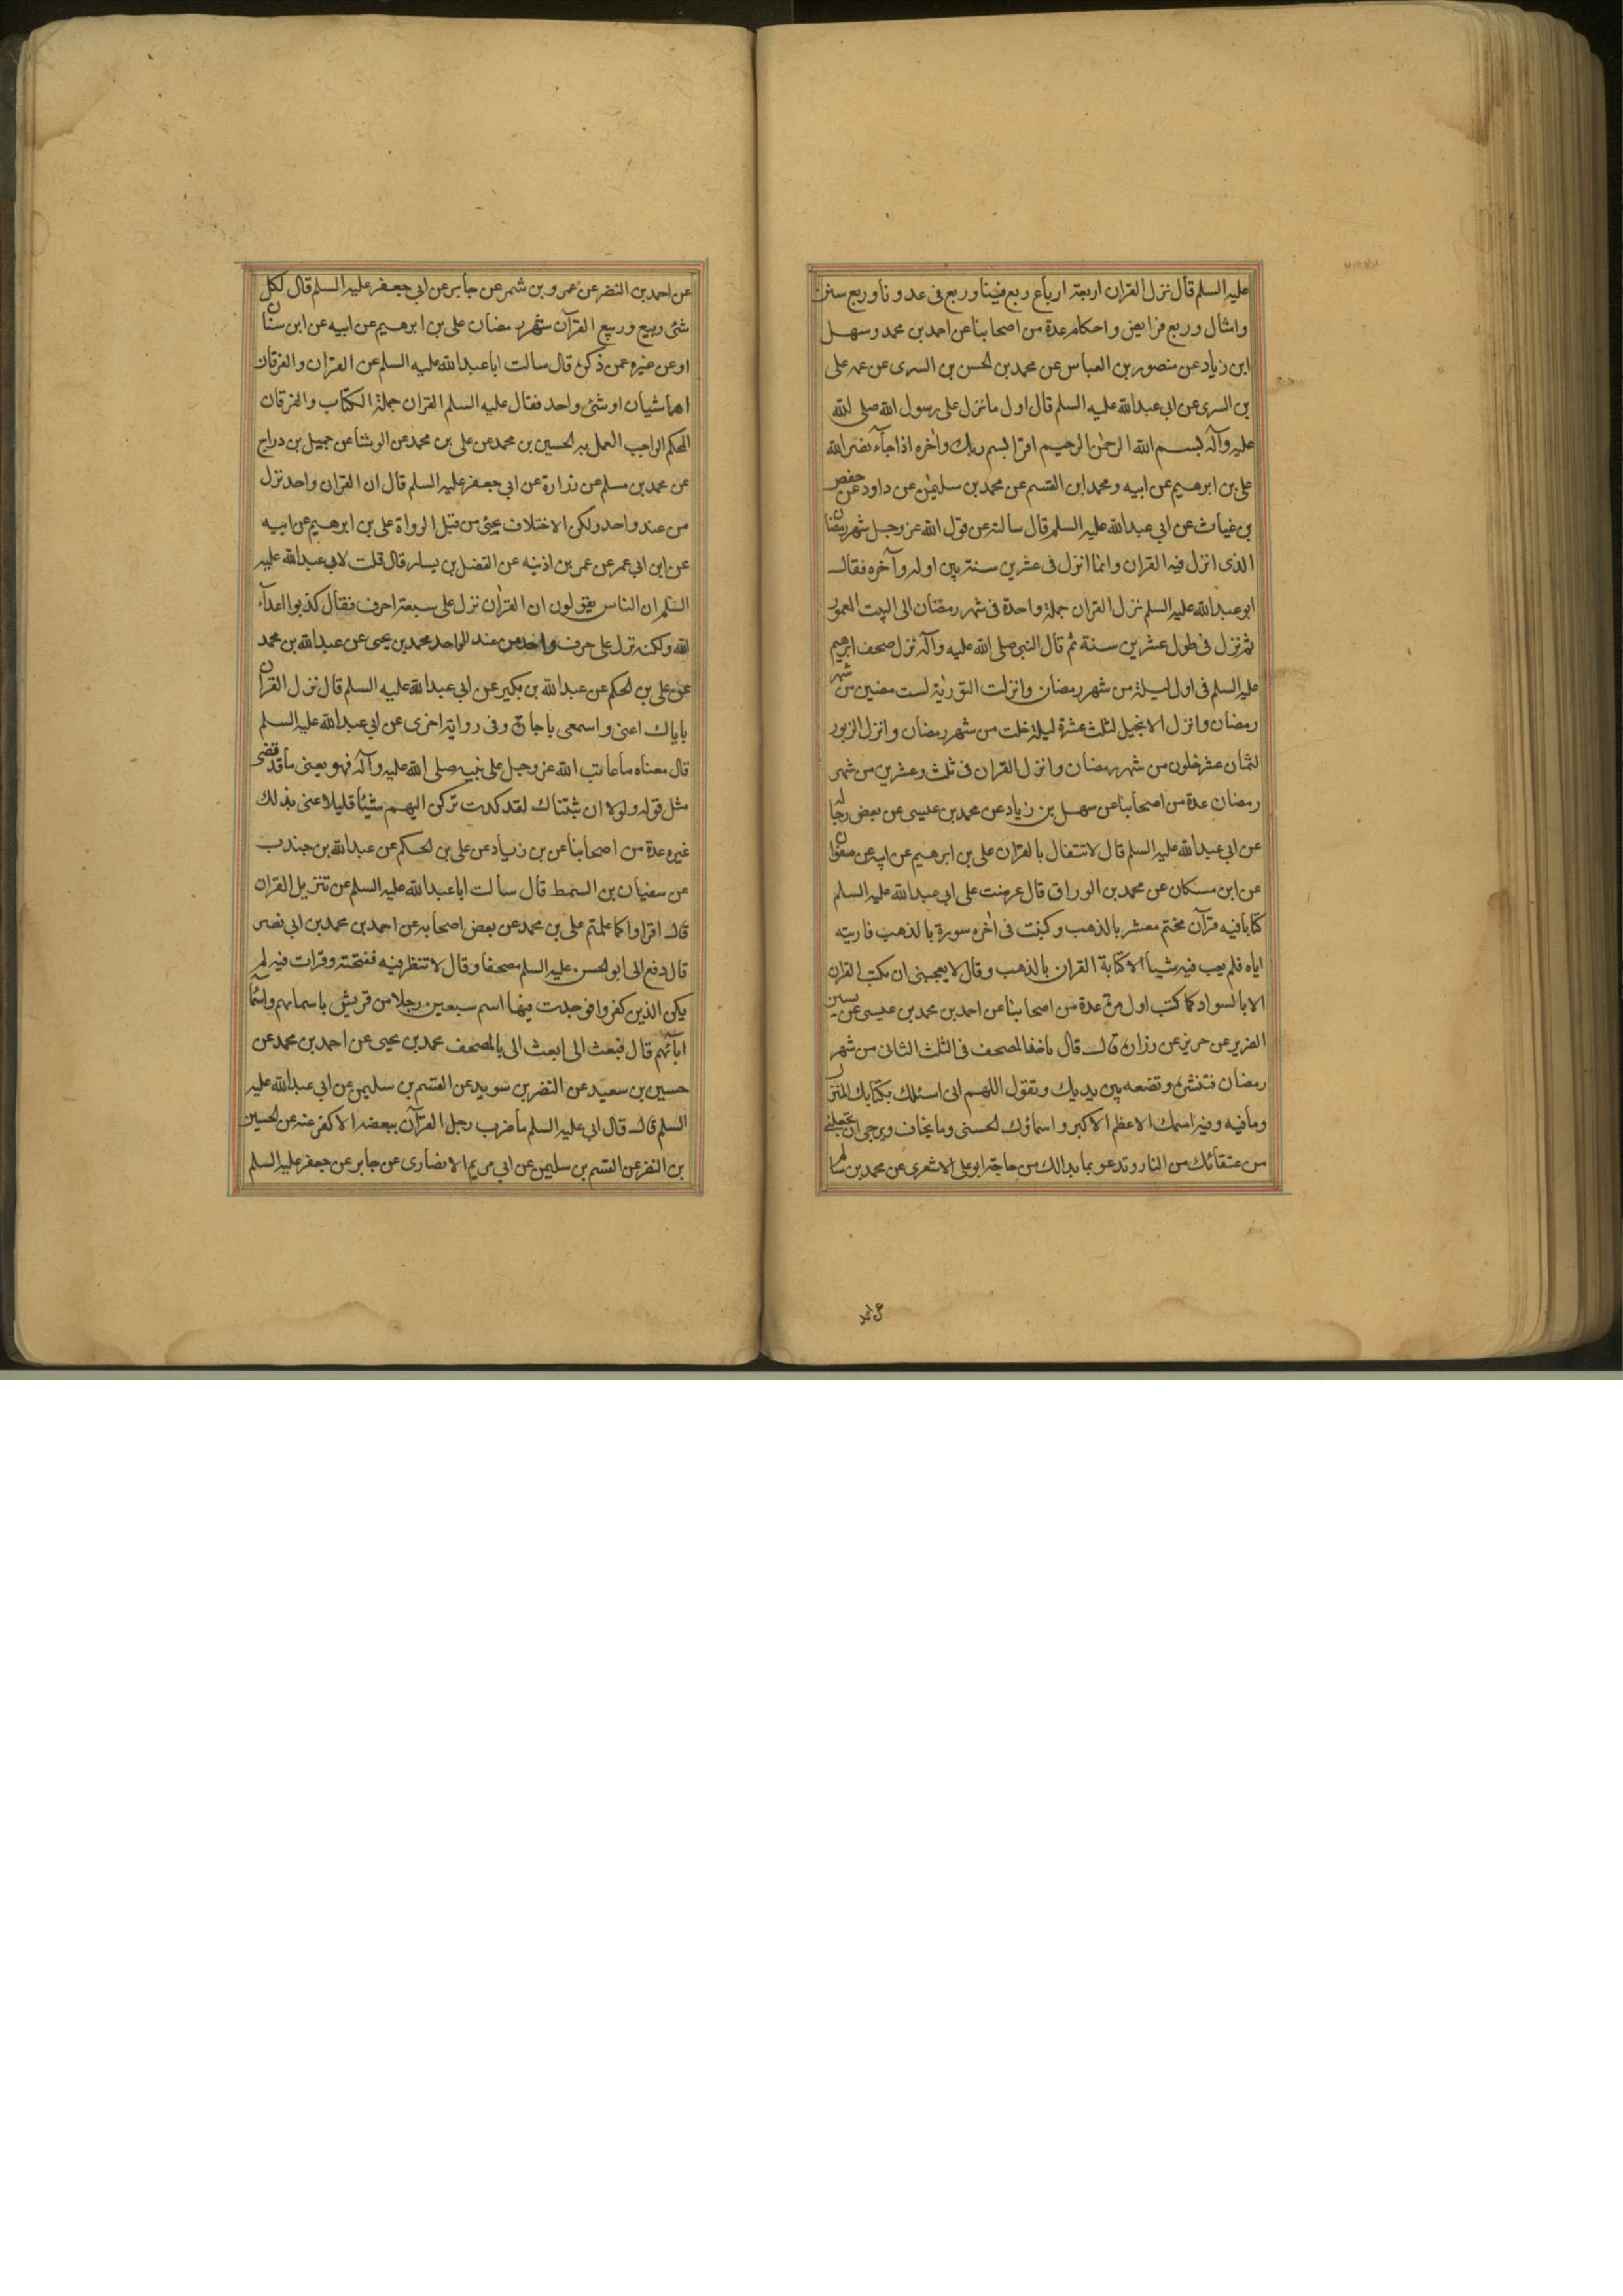 عليه السلم قال نزل القران اربعة ارباع ربع فينا وربع فى عدونا وربع سنن
وامثال وربع فرايض واحكام عدة من اصحابنا عن احمد بن محمد وسهل
ابن زياد عن منصور بن العباس عن محمد بن الحسن بن السرى عن عمه على
بن السرى عن ابي عبد الله عليه السلم قال اول ما نزل على رسول الله صلى الله
عليه وآله بسم الله الرحمن الرحيم اقرا باسم ربك واخره اذا جآء نصر الله
على بن ابرهيم عن ابيه ومحمد ابن القسم عن محمد بن سليمن عن داود عن حفص
بن غياث عن ابي عبد الله عليه السلم قال سالته عن قول الله عز وجل شهر رمضان
الذى انزل فيه القران وانما انزل فى عشرين سنة بين اوله وآخره فقال
ابو عبد الله عليه السلم نزل القران جملة واحدة فى شهر رمضان الى البيت المعمور
ثم نزل فى طول عشرين سنة ثم قال النبى صلى الله عليه وآله نزل صحف ابرهيم
عليه السلم فى اول ليلة من شهر رمضان وانزلت التورية لست مضين من شهر
رمضان وانزل الانجيل لثلث عشرة ليلة خلت من شهر رمضان وانزل الزبور
لثمان عشر خلون من شهر رمضان وانزل القران فى ثلث وعشرين من شهر
رمضان عدة من اصحابنا عن سهل بن زياد عن محمد بن عيسى عن بعض رجاله
عن ابي عبد الله عليه السلم قال لا تتفال بالقران على بن ابرهيم عن ابيه عن صفوان
عن ابن مسكان عن محمد بن الوراق قال عرضت على ابي عبد الله عليه السلم
كتابا فيه قرآن مختم معشر بالذهب وكتبت فى اخره سورة بالذهب فاريته
اياه فلم يعب فيه شيأ الا كتابة القران بالذهب وقال لا يعجبنى ان يكتب القران
الا بالسواد كما كتب اول مرة عدة من اصحابنا عن احمد بن محمد بن عيسى عن يسين
الضرير عن حريز عن زرارة قال قال تاخذ المصحف فى الثلث الثانى من شهر
رمضان فتنشره وتضعه بين يديك وتقول اللهم انى اسئلك بكتابك المنزل
وما فيه وفيه اسمك الاعظم الاكبر واسماؤك الحسنى وما يخاف ويرجى ان تجعلنى
من عتقائك من النار وتدعو بما بدا لك من حاجة ابو على الاشعرى عن محمد بن سالم
عن احمد
عن احمد بن النضر عن عمرو بن شمر عن جابر عن ابي جعفر عليه السلم قال لكل
شئ ربيع وربيع القرآن شهر رمضان على بن ابرهيم عن ابيه عن ابن سنان
او عن غيره عمن ذكره قال سالت ابا عبد الله عليه السلم عن القران والفرقان
اهما شيأن او شئ واحد فقال عليه السلم القران جملة الكتاب والفرقان
المحكم الواجب العمل به الحسين بن محمد عن على بن محمد عن الوشا عن جميل بن دراج
عن محمد بن مسلم عن زرارة عن ابي جعفر عليه السلم قال ان القران واحد نزل
من عند واحد ولكن الاختلاف يجئ من قبل الرواة على بن ابرهيم عن ابيه
عن ابن ابي عمر عن عمر بن اذينه عن الفضل بن يسار قال قلت لابي عبد الله عليه
السلم ان الناس يقولون ان القران نزل على سبعة احرف فقال كذبوا اعدآء
الله ولكنه نزل على حرف واحد من عند الواحد محمد بن يحيى عن عبد الله بن محمد
عن على بن الحكم عن عبد الله بن بكير عن ابي عبد الله عليه السلم قال نزل القران
باياك اعنى واسمعى يا جارة وفى رواية اخرى عن ابي عبد الله عليه السلم
قال معناه ما عاتب الله عز وجل على نبيه صلى الله عليه وآله فهو يعنى ما قد قضى
مثل قوله ولولا ان ثبتناك لقد كدت تركن اليهم شيئا قليلا عنى بذلك
غيره عدة من اصحابنا عن بن زياد عن على بن الحكم عن عبد الله بن جندب
عن سفيان بن السمط قال سالت ابا عبد الله عليه السلم عن تنزيل القران
قال اقراوا كما علمتم على بن محمد عن بعض اصحابه عن احمد بن محمد بن ابي نصر
قال دفع الى ابو الحسن عليه السلم مصحفا وقال لا تنظر فيه ففتحته وقرات فيه لم
يكن الذين كفروا فوجدت فيها اسم سبعين رجلا من قريش باسمايهم واسمآء
ابآئهم قال فبعث الى ابعث الى بالمصحف محمد بن يحيى عن احمد بن محمد عن
حسين بن سعيد عن النضر بن سويد عن القسم بن سليمن عن ابي عبد الله عليه
السلم قال قال ابي عليه السلم ما ضرب رجل القرآن ببعضه الا كفر عنه عن الحسين
بن النضر عن القسم بن سليمن عن ابي مريم الانصارى عن جابر عن جعفر عليه السلم